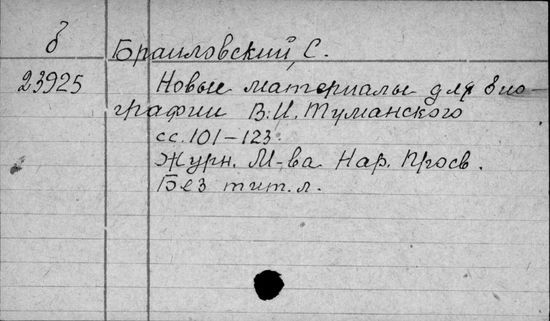 б
Браиловский, С.
23925
Новые материалы для био-
графии В. И. Туманского
сс. 101-123.
Журн. М-ва Нар. Просв.
Без тит. л.